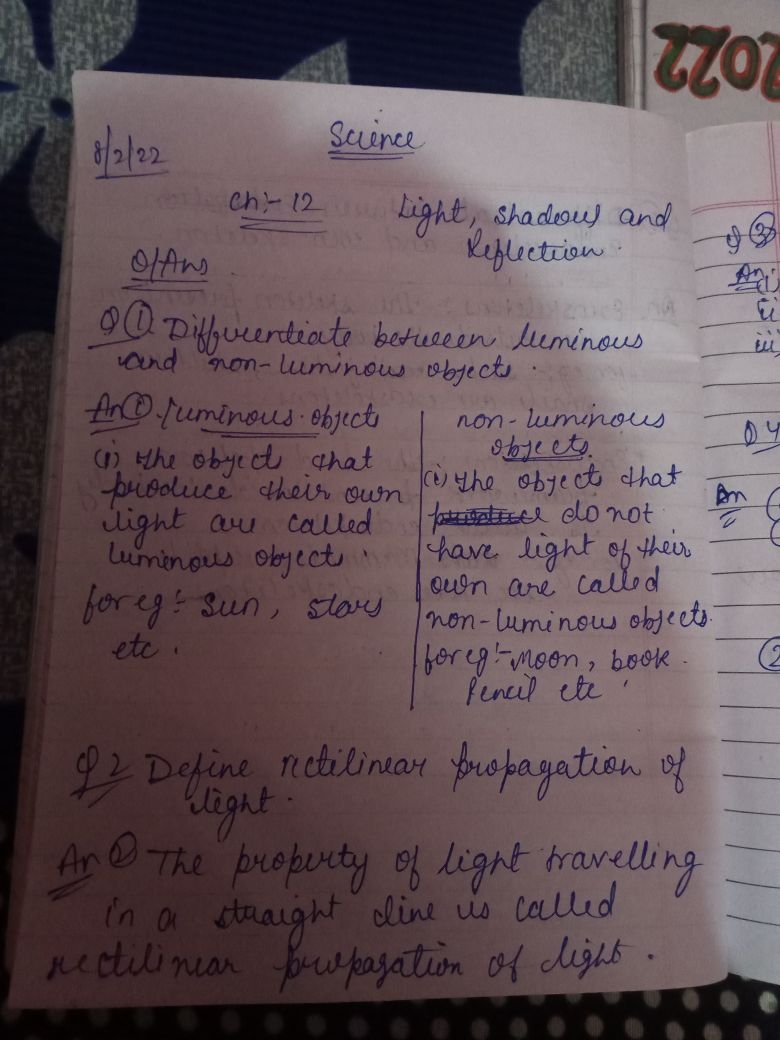 2022
8/2/22
Science
Ch:- 12 Light, shadows and
Reflection.
Q/Ans
Q 1 Differentiate between luminous
and non-luminous objects.
An 1 luminous objects
(i) the objects that
produce their own
light are called
luminous objects.
for eg:- Sun, stars
etc.
non-luminous
objects
(i) the objects that
do not
have light of their
own are called
non-luminous objects.
for eg:- Moon, book.
Pencil etc.
Q 2 Define rectilinear propagation of
light.
An 2 The property of light travelling
in a straight line is called
rectilinear propagation of light.
Q 3
An (i)
ii
iii
Q 4
An
2